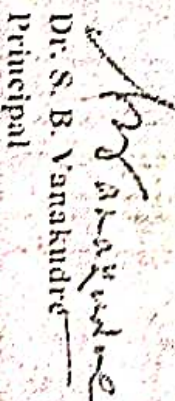 Dr. S. B. Vanakudre
Principal